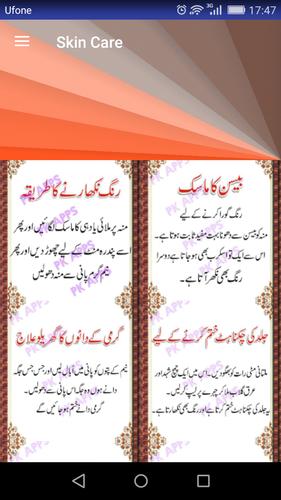 Ufone
3G
17:47
Skin Care
رنگ نکھارنے کا طریقہ
منہ پر ملائی یا دہی کا ماسک لگائیں اور پھر
اسے پندرہ منٹ کے لیے چھوڑ دیں اور پھر
نیم گرم پانی سے منہ دھو لیں
بیسن کا ماسک
رنگ گورا کرنے کے لیے
منہ کو بیسن سے دھونا بہت مفید ثابت ہوتا ہے۔
اس سے ایک تو اسکی چکناہٹ دور ہو جاتی ہے دوسرا
رنگ بھی نکھار آتا ہے۔
گرمی کے دانوں کا گھریلو علاج
نیم کے پتوں کو پانی میں ابال لیں اور جس جگہ
دانے ہوں اس جگہ کو دھوئیں۔ گرمی کے دانے
ختم ہو جائیں گے
جلد کی چکناہٹ ختم کرنے کے لیے
ملتانی مٹی رات کو بھگو دیں۔ اس میں چمچ شہد اور
عرق گلاب ملا کر چہرے پر لیپ کریں۔
یہ جلد کی چکناہٹ ختم کرتی ہے اور رنگ بھی نکھارتی ہے۔
PK APPS
PK APPS
PK APPS
PK APPS